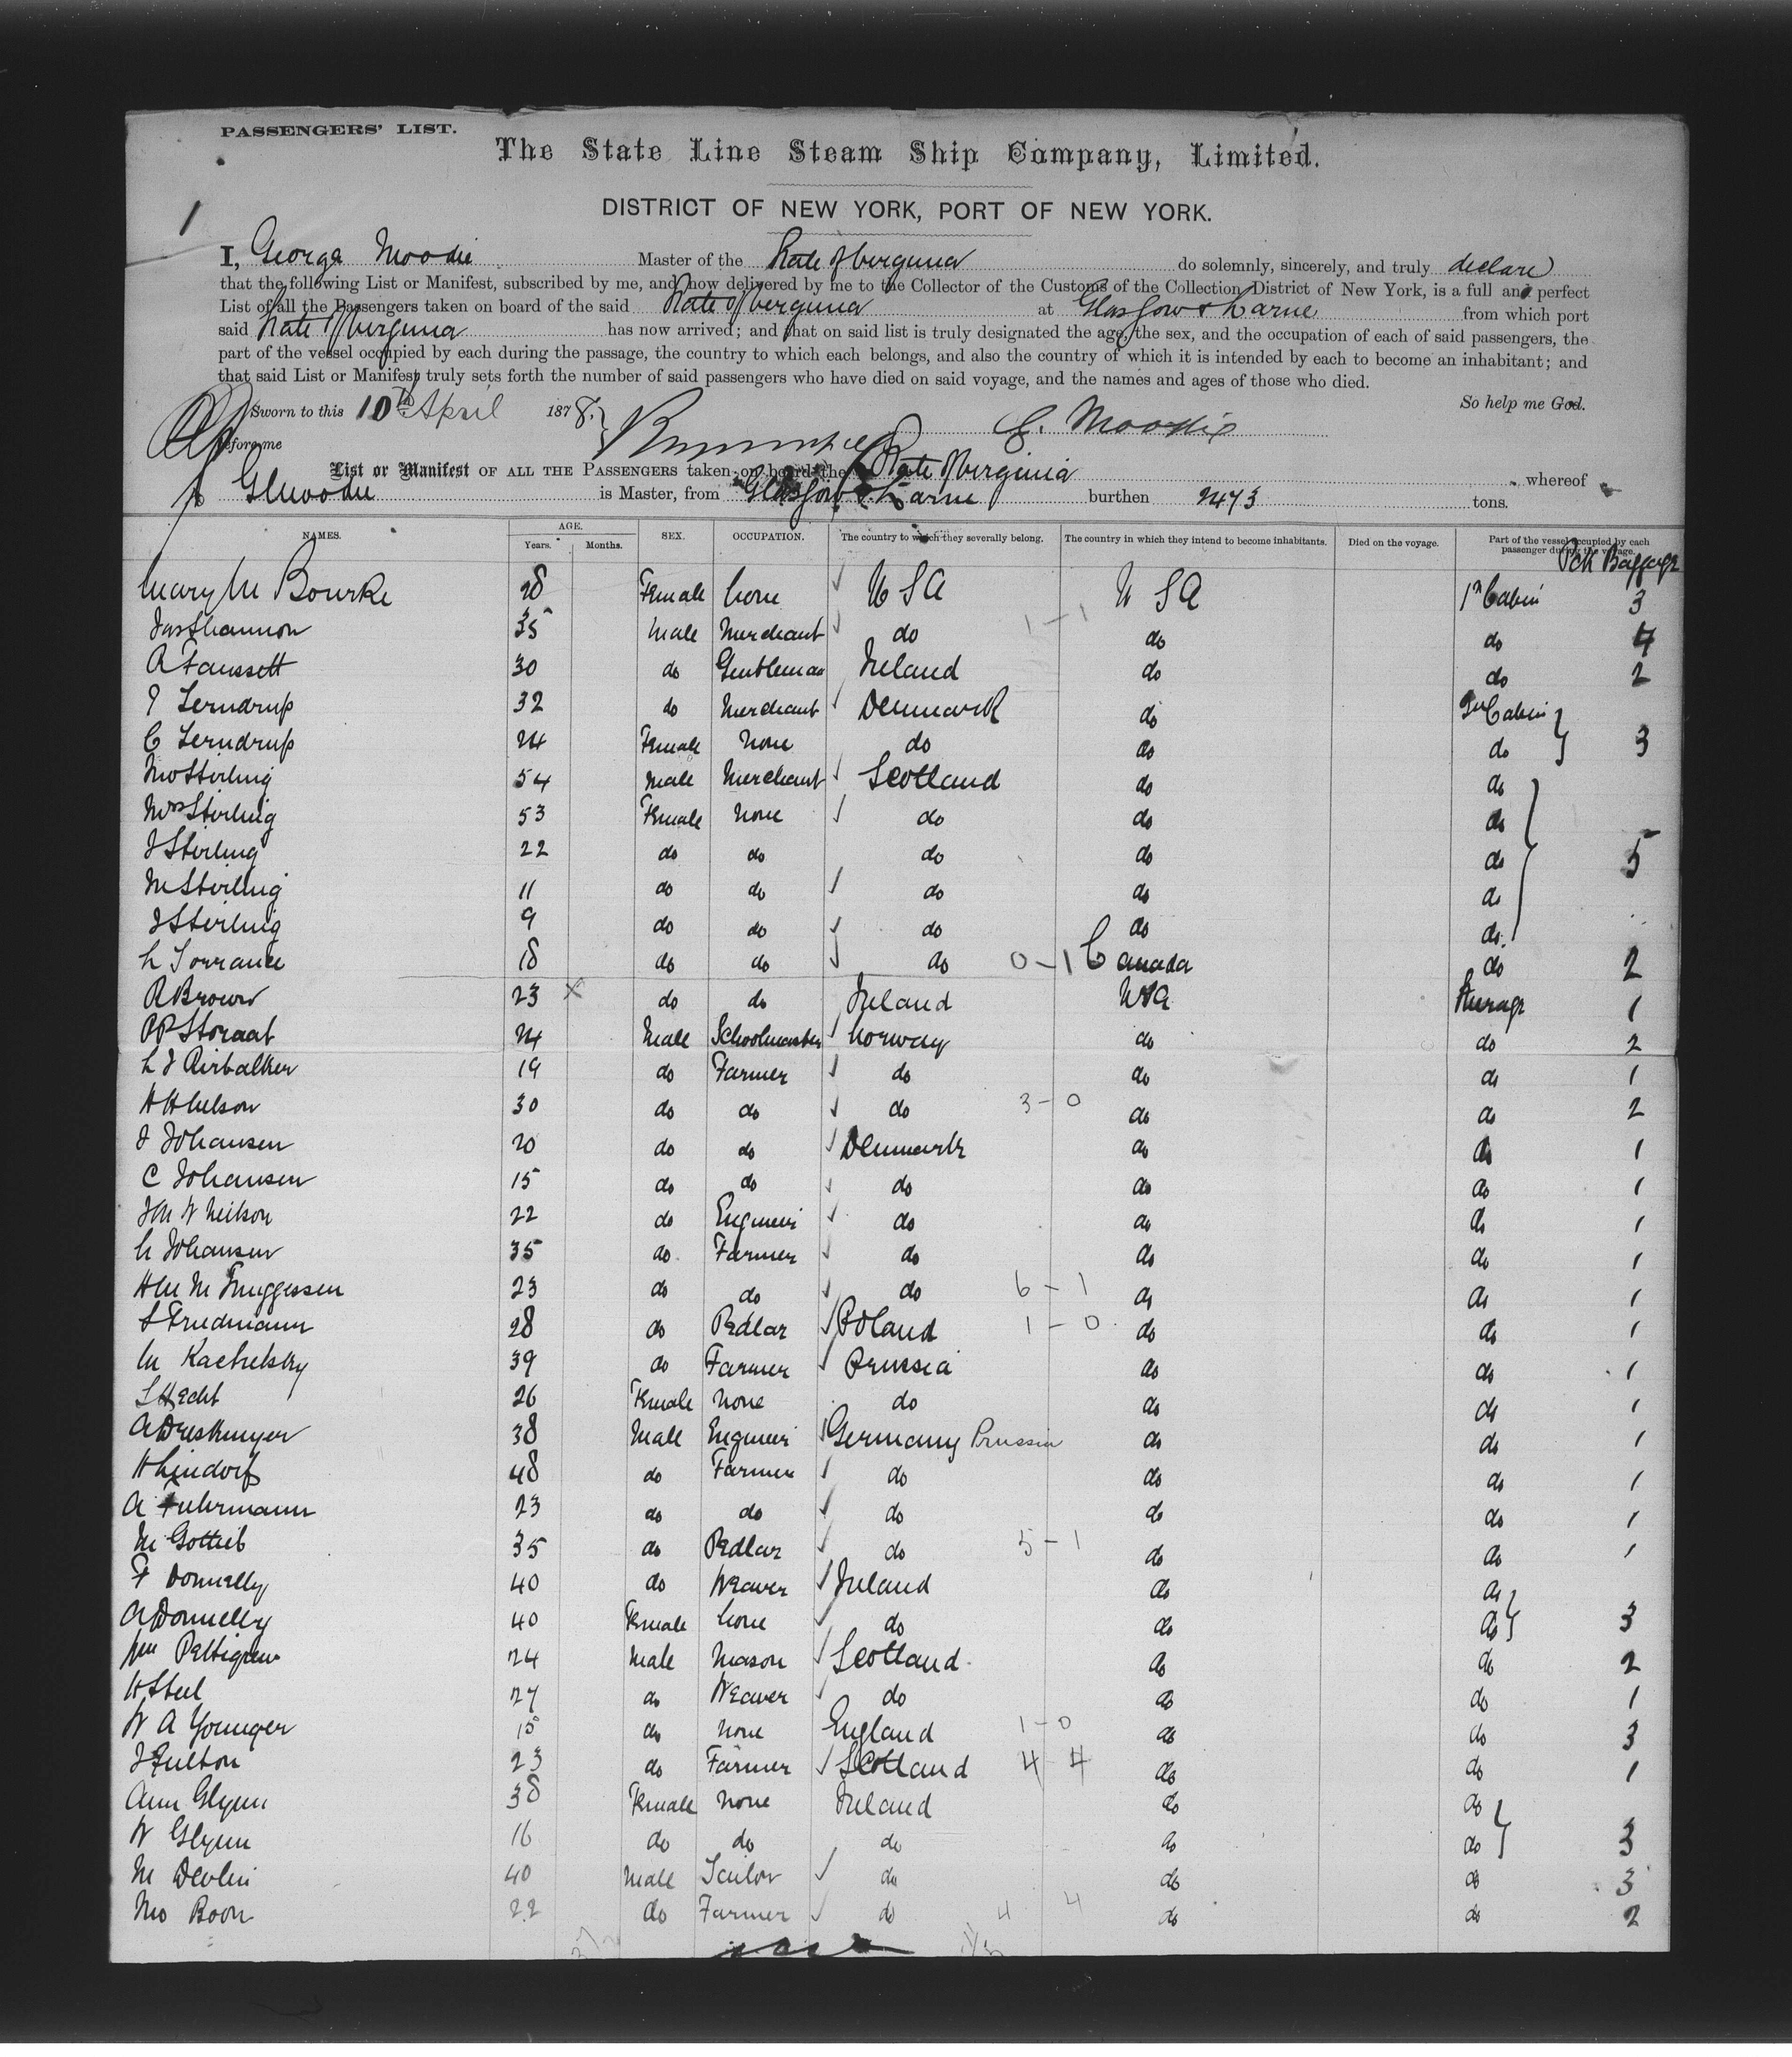 PASSENGERS' LIST.
The State Line Steam Ship Company, Limited.
1
DISTRICT OF NEW YORK, PORT OF NEW YORK.
I, George Moodie Master of the State of Virginia do solemnly, sincerely, and truly declare
that the following List or Manifest, subscribed by me, and now delivered by me to the Collector of the Customs of the Collection District of New York, is a full and perfect
List of all the Passengers taken on board of the said State of Virginia at Glasgow & Larne from which port
said State of Virginia has now arrived; and that on said list is truly designated the age, the sex, and the occupation of each of said passengers, the
part of the vessel occupied by each during the passage, the country to which each belongs, and also the country of which it is intended by each to become an inhabitant; and
that said List or Manifest truly sets forth the number of said passengers who have died on said voyage, and the names and ages of those who died.
Sworn to this 10th April 1878. So help me God.
before me G. Moodie
List or Manifest OF ALL THE PASSENGERS taken on board the State of Virginia whereof
G Moodie is Master, from Glasgow & Larne burthen 2473 tons.
NAMES. AGE. Years. Months. SEX. OCCUPATION. The country to which they severally belong. The country in which they intend to become inhabitants. Died on the voyage. Part of the vessel occupied by each passenger during the voyage. Pck Baggage
Mary M Bourke 28 Female None USA USA 1st Cabin 3
Jas Shannon 35 Male Merchant do 1-1 do do 4
R Faussett 30 do Gentleman Ireland do do 2
Lerndrup 32 do Merchant Denmark do 2nd Cabin
C Lerndrup 24 Female None do do do 3
Stirling 54 Male Merchant Scotland do do
Mrs Stirling 53 Female None do do do
J Stirling 22 do do do do do 5
M Stirling 11 do do do do do
J Stirling 9 do do do do do
L Torrance 18 do do do 0-1 Canada do 2
R Brown 23 X do do Ireland USA Steerage 1
Storaat 24 Male Schoolmaster Norway do do 2
19 do Farmer do do do 1
30 do do do 3-0 do do 2
J Johansen 20 do do Denmark do do 1
C Johansen 15 do do do do do 1
Neilson 22 do Engineer do do do 1
Johansen 35 do Farmer do do do 1
23 do do do 6-1 do do 1
S Friedmann 28 do Pedlar Poland 1-0 do do 1
39 do Farmer Prussia do do 1
S Hecht 26 Female None do do do 1
38 Male Engineer Germany Prussia do do 1
H Lindorf 48 do Farmer do do do 1
A Fuhrmann 23 do do do do do 1
M Gottlieb 35 do Pedlar do 5-1 do do 1
F Donnelly 40 do Weaver Ireland do do
A Donnelly 40 Female None do do do 3
Wm Pettigrew 24 Male Mason Scotland do do 2
H Steel 27 do Weaver do do do 1
W A Younger 15 do None England 1-0 do do 3
J Fulton 23 do Farmer Scotland 4-4 do do 1
Ann Glynn 38 Female None Ireland do do
W Glynn 16 do do do do do 3
M Devlin 40 Male Tailor do do do 3
Boon 22 do Farmer do 4 4 do do 2